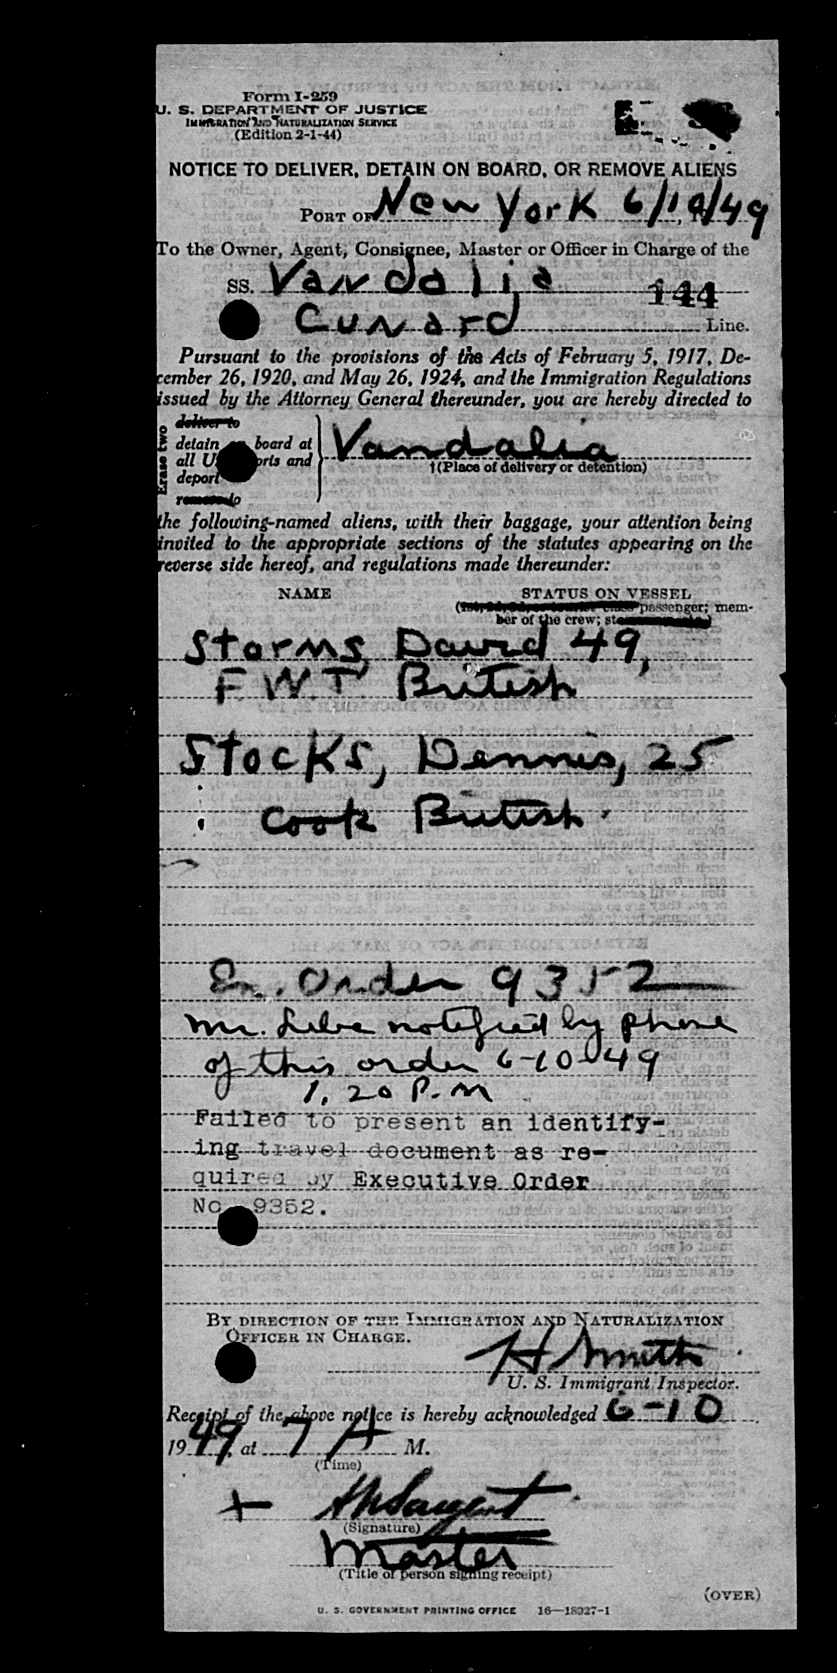 Form I-259
U. S. DEPARTMENT OF JUSTICE
IMMIGRATION AND NATURALIZATION SERVICE
(Edition 2-1-44)
NOTICE TO DELIVER, DETAIN ON BOARD, OR REMOVE ALIENS
PORT OF New York 6/10/49
To the Owner, Agent, Consignee, Master or Officer in Charge of the
SS. Vandalia 144
Cunard Line.
Pursuant to the provisions of the Acts of February 5, 1917, De-
cember 26, 1920, and May 26, 1924, and the Immigration Regulations
issued by the Attorney General thereunder, you are hereby directed to
Erase two
deliver to
detain on board at
all U ports and
deport
remove to
Vandalia
†(Place of delivery or detention)
the following-named aliens, with their baggage, your attention being
invited to the appropriate sections of the statutes appearing on the
reverse side hereof, and regulations made thereunder:
NAME STATUS ON VESSEL
passenger; mem-
ber of the crew;
Storms, David 49,
F.W.T. British
Stocks, Dennis, 25
Cook British
Ex. Order 9352
Mr. notified by phone
of this order 6-10-49
1.20 P.M.
Failed to present an identify-
ing travel document as re-
quired by Executive Order
No 9352.
BY DIRECTION OF THE IMMIGRATION AND NATURALIZATION
OFFICER IN CHARGE.
H Smith
U. S. Immigrant Inspector.
Receipt of the above notice is hereby acknowledged 6-10
1949, at 7 A M.
(Time)
+ Sargent
(Signature)
Master
(Title of person signing receipt)
(OVER)
U. S. GOVERNMENT PRINTING OFFICE 16—18027-1